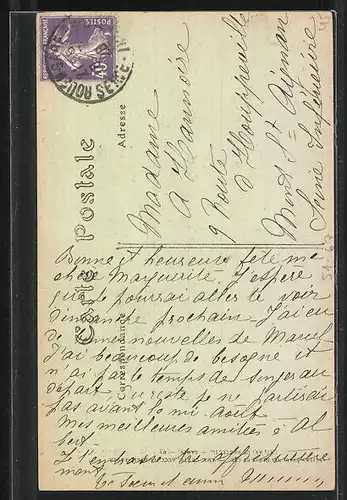 Carte Postale
Correspondance
Adresse
POSTES
40c
ROUEN
Madame
A Hannoire
9 Route
d'Houppeville
Mont St Aignan
Seine Inférieure
51-67
Bonne et heureuse fête ma
chère Marguerite. J'espère
que je pourrai aller te voir
dimanche prochain. J'ai eu
de bonnes nouvelles de Marcel
J'ai beaucoup de besogne et
n'ai pas le temps de songer au
départ, du reste je ne partirai
pas avant la mi-Août
Mes meilleures amitiés à Al
bert
Je t'embrasse bien affectueuse
ment
Ta Sœur et amie